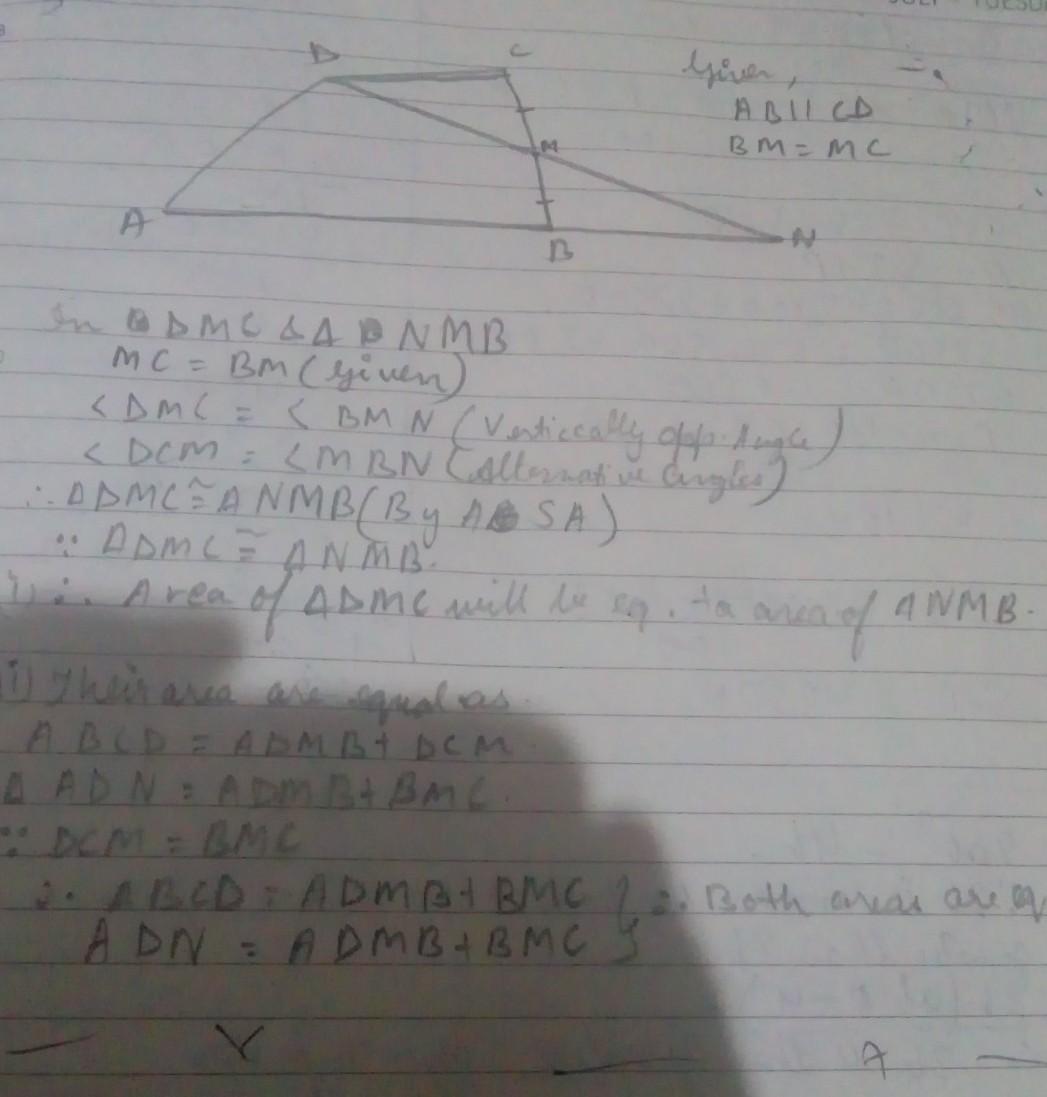 D C
Given,
AB || CD
BM = MC
M
A B N
In DMC & Δ NMB
MC = BM (Given)
< DMC = < BMN (Verticcally opp. Angle)
< DCM = < MBN (Alternative Angles)
∴ ΔDMC ≅ ΔNMB (By A SA)
∵ ΔDMC ≅ ΔNMB.
i) ∴ Area of ΔDMC will be eq. to area of ΔNMB.
i) Their area are equal as
ABCD = ADMB + DCM
Δ ADN = ADMB + BMC.
∵ DCM = BMC
∴ ABCD = ADMB + BMC } ∴ Both areas are eq
ADN = ADMB + BMC